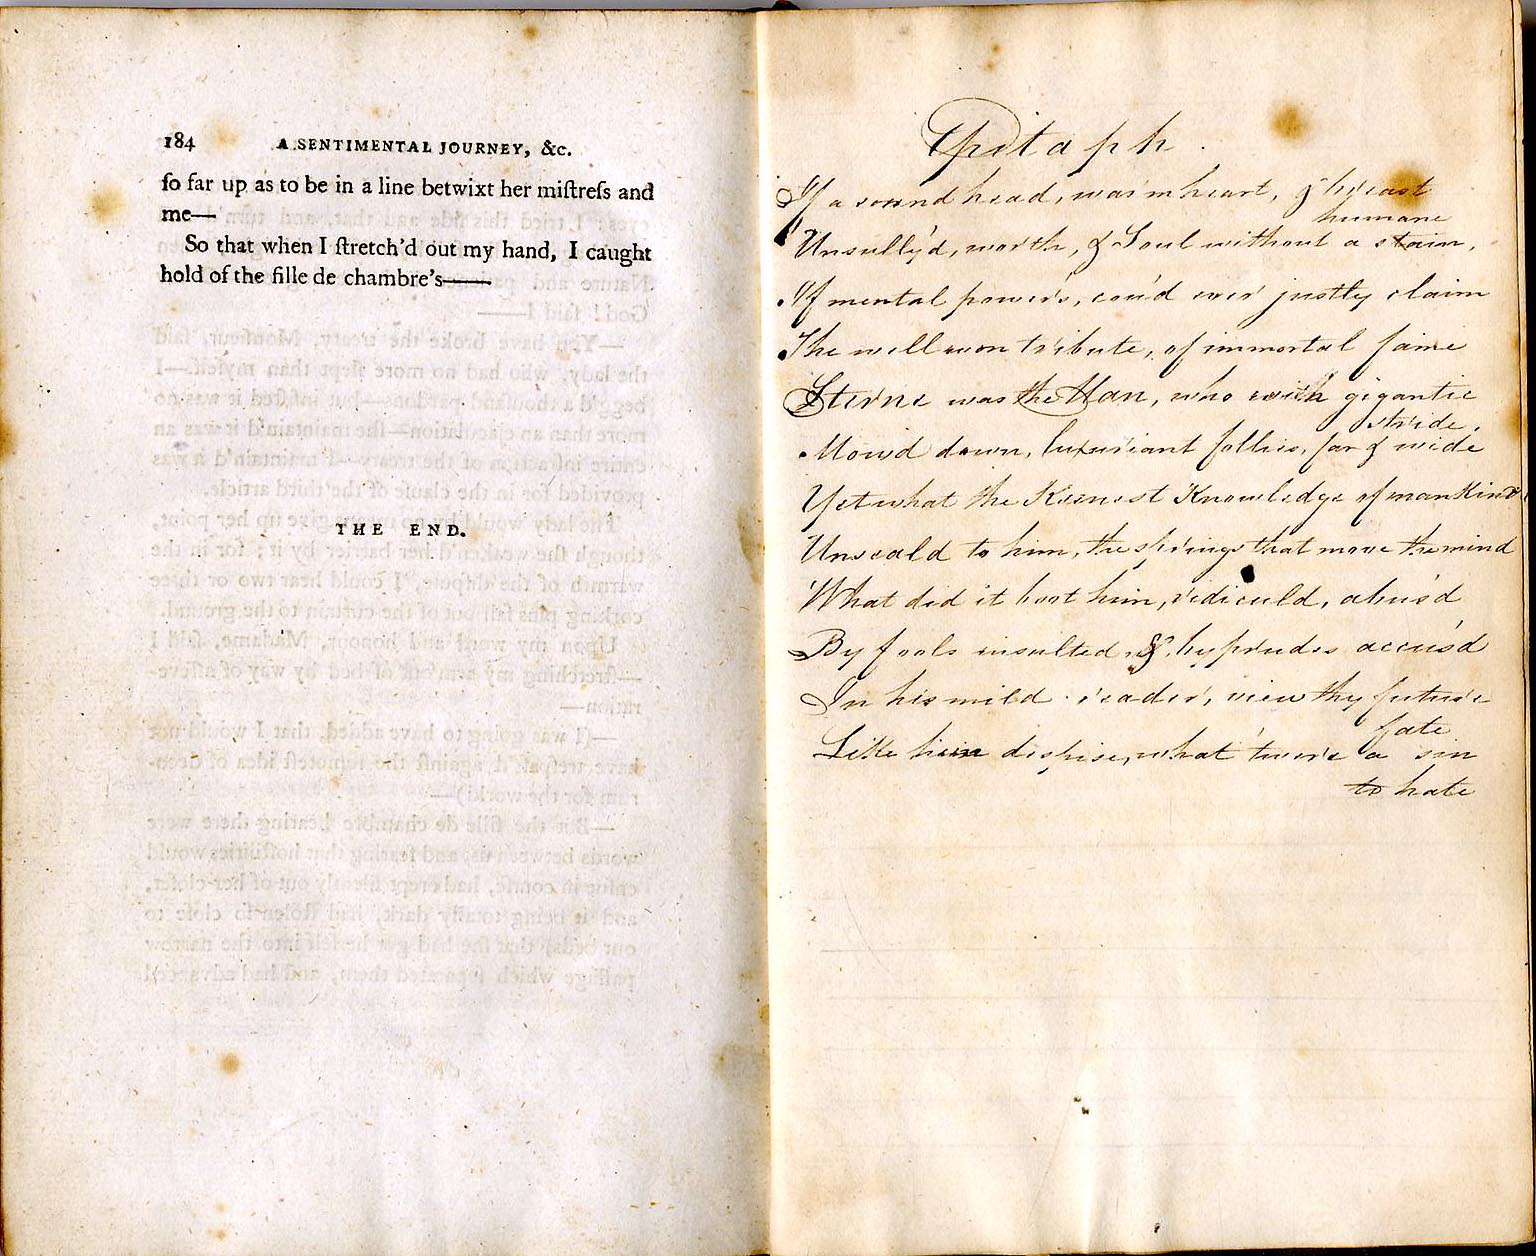 184 A SENTIMENTAL JOURNEY, &c.
ſo far up as to be in a line betwixt her miſtreſs and
me—
So that when I ſtretch'd out my hand, I caught
hold of the fille de chambre's——
THE END.
Epitaph.
If a sound head, warm heart, & breast
humane
Unsully'd, worth, & Soul without a stain,
If mental power's, cou'd ever justly claim
The well won tribute, of immortal fame
Sterne was the Man, who with gigantic
stride,
Mow'd down, luxuriant follies, far & wide
Yet what the Keenest Knowledge of mankind
Unseald to him, the springs that move the mind
What did it boot him, ridiculd, abus'd
By fools insulted, & by prudes accus'd
In his mild reader, view thy future
fate
Like him despise, what 'twere a sin
to hate